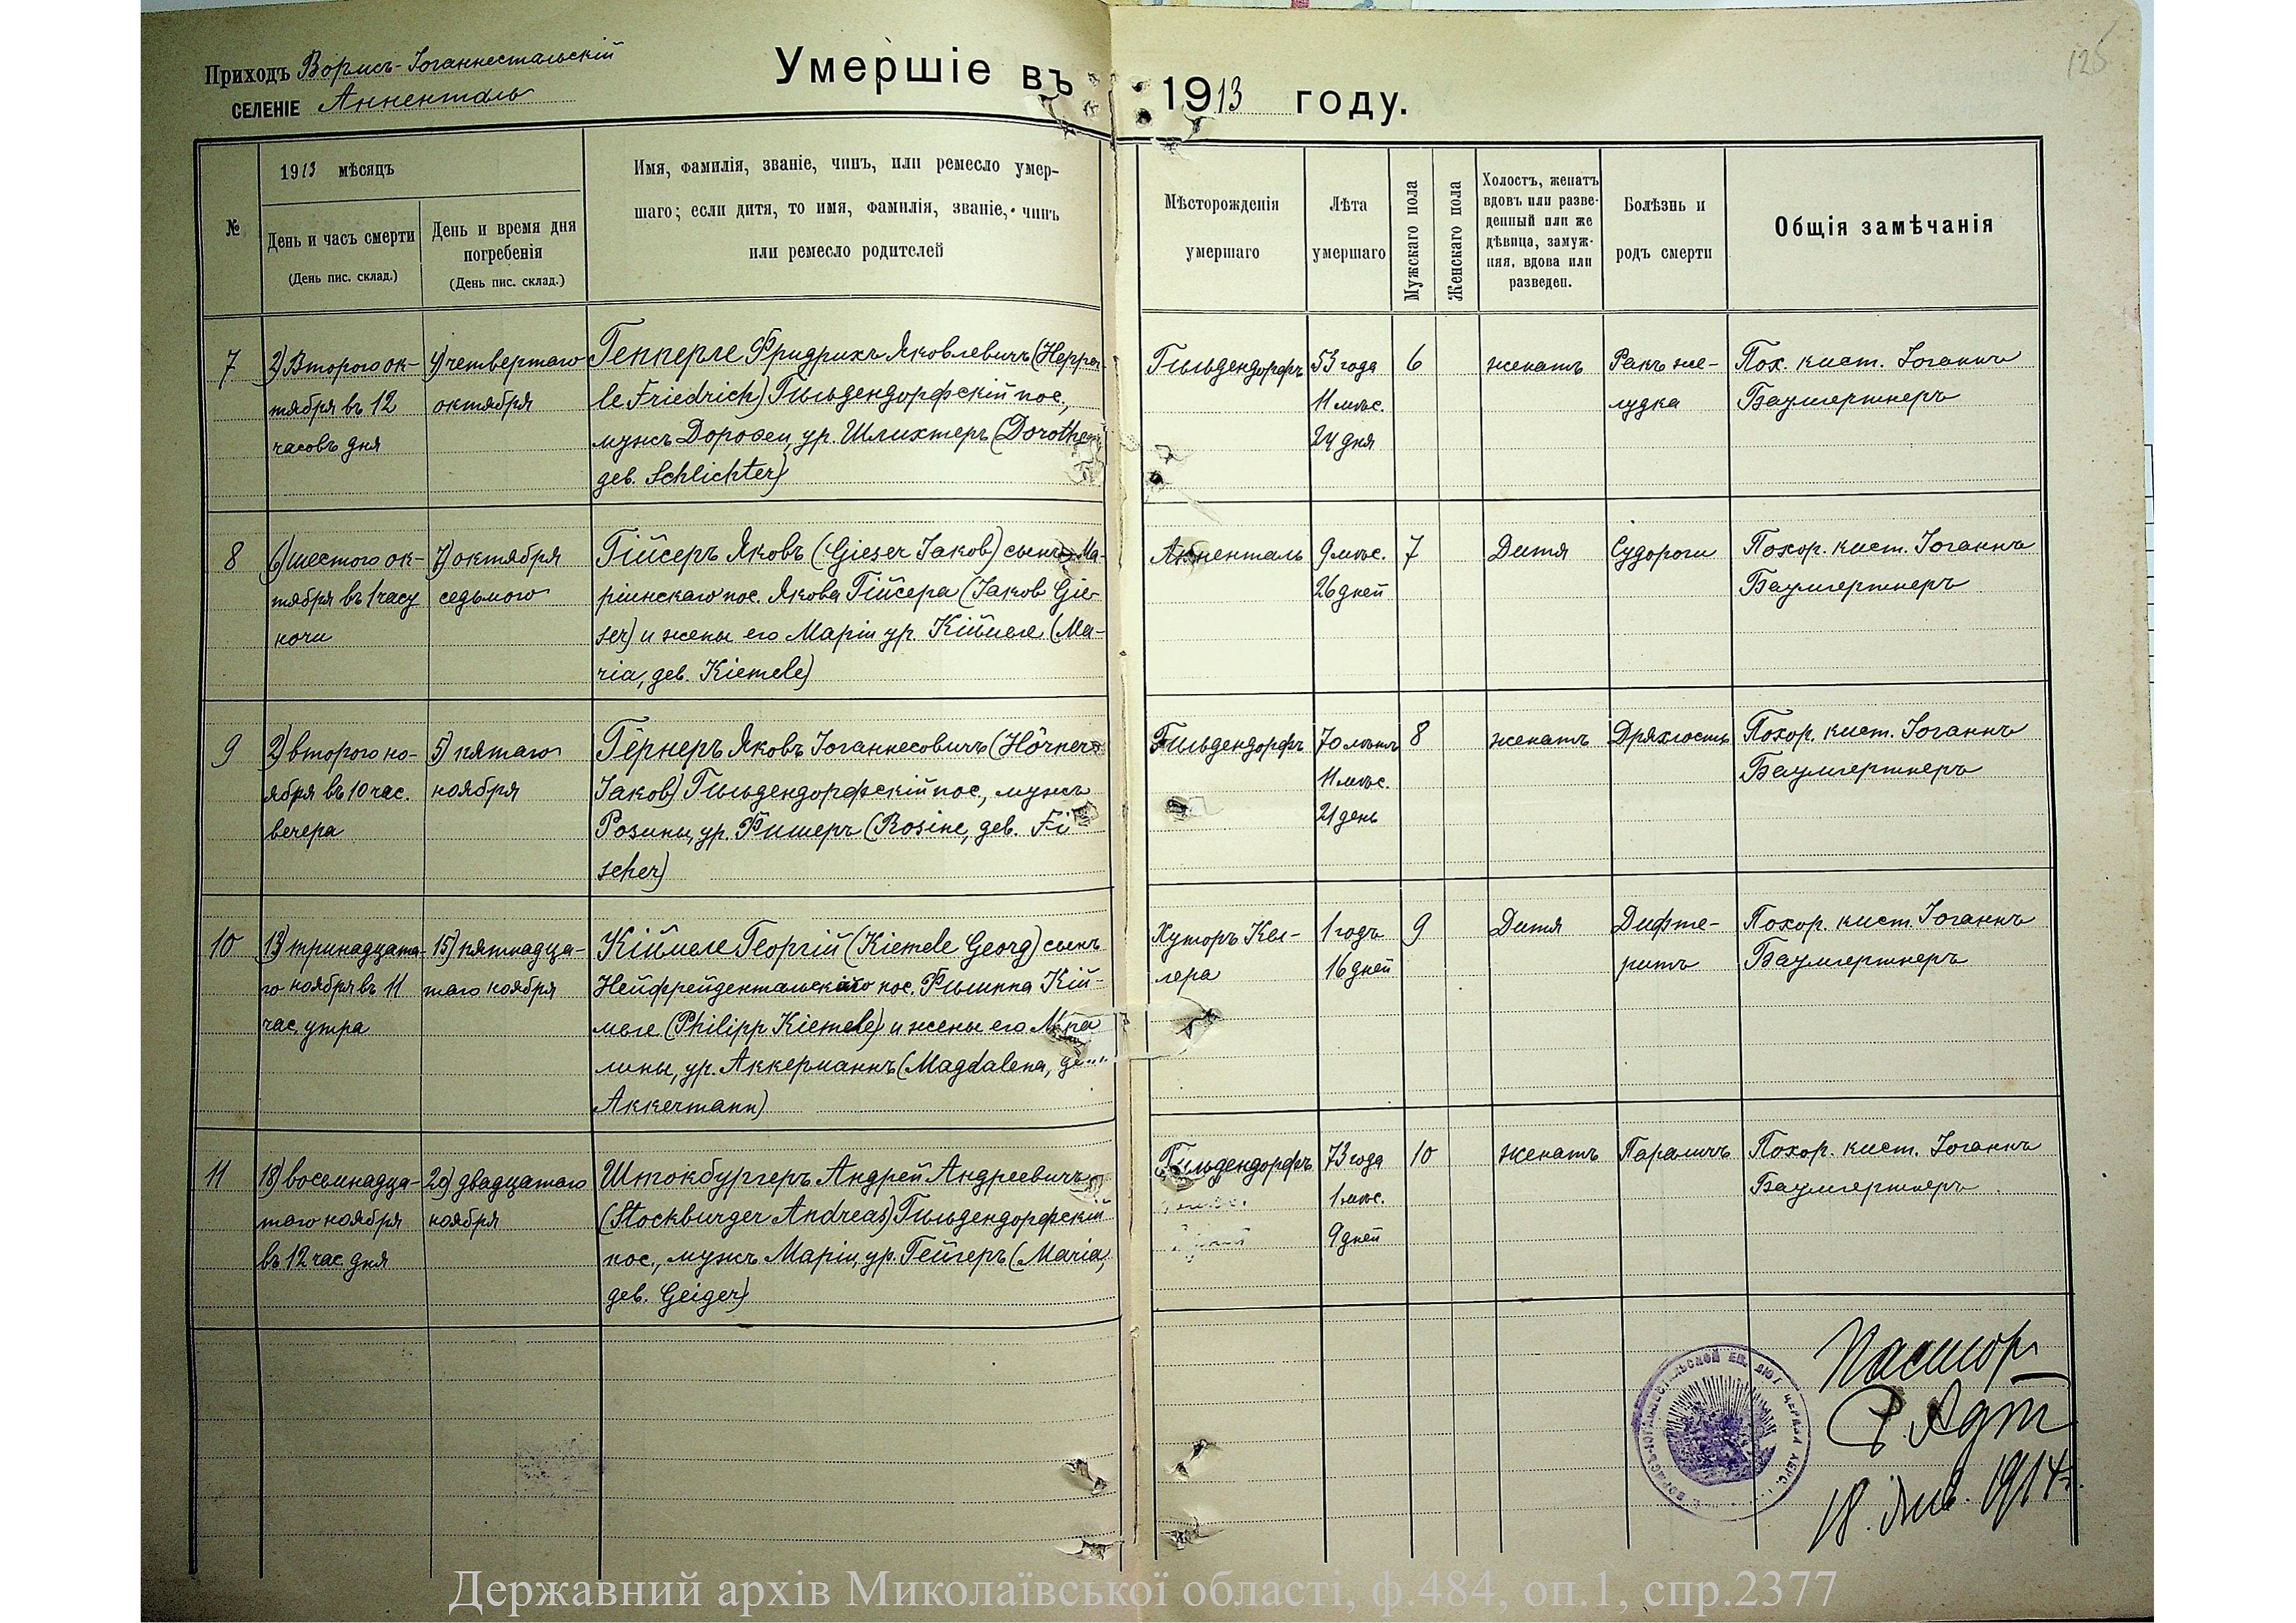 125
Приходъ Вормсъ-Іоганнестальскій
селеніе Анненталь
Умершіе въ 1913 году.
№
1913 мѣсяцъ
День и часъ смерти
(День пис. склад.)
День и время дня
погребенія
(День пис. склад.)
Имя, фамилія, званіе, чинъ, или ремесло умер-
шаго; если дитя, то имя, фамилія, званіе, чинъ
или ремесло родителей
Мѣсторожденія
умершаго
Лѣта
умершаго
Мужскаго пола
Женскаго пола
Холостъ, женатъ
вдовъ или разве-
денный или же
дѣвица, замуж-
няя, вдова или
разведен.
Болѣзнь и
родъ смерти
Общія замѣчанія
7
2) Второго ок-
тября въ 12
часовъ дня
4) четвертаго
октября
Гепперле Фридрихъ Яковлевичъ (Hepper-
le Friedrich) Гильдендорфскій пос.,
мужъ Доротеи, ур. Шлихтеръ (Dorothea,
geb. Schlichter)
Гильдендорфъ
53 года
11 мѣс.
24 дня
6
женатъ
Ракъ же-
лудка
Пох. кист. Іоганнъ
Баумгертнеръ
8
6) шестого ок-
тября въ 1 часу
ночи
7) октября
седьмого
Гійсеръ Яковъ (Gieser Jakob) сынъ Ма-
ріинскаго пос. Якова Гійсера (Jakob Gie-
ser) и жены его Маріи ур. Кіймеле (Ma-
ria, geb. Kiemele)
Анненталь
9 мѣс.
26 дней
7
Дитя
Судороги
Похор. кист. Іоганнъ
Баумгертнеръ
9
2) второго но-
ября въ 10 час.
вечера
5) пятаго
ноября
Гёрнеръ Яковъ Іоганнесовичъ (Hörner
Jakob) Гильдендорфскій пос., мужъ
Розины, ур. Фишеръ (Rosine, geb. Fi-
scher)
Гильдендорфъ
70 лѣтъ
11 мѣс.
21 день
8
женатъ
Дряхлость
Похор. кист. Іоганнъ
Баумгертнеръ
10
13) тринадцата-
го ноября въ 11
час. утра
15) пятнадца-
таго ноября
Кіймеле Георгій (Kiemele Georg) сынъ
Нейфрейдентальскаго пос. Филиппа Кій-
меле (Philipp Kiemele) и жены его
лины, ур. Аккерманнъ (Magdalena, geb.
Akkermann)
Хуторъ Кел-
лера
1 годъ
16 дней
9
Дитя
Дифте-
ритъ
Похор. кист. Іоганнъ
Баумгертнеръ
11
18) восемнадца-
таго ноября
въ 12 час. дня
20) двадцатаго
ноября
Штокбургеръ Андрей Андреевичъ
(Stockburger Andreas) Гильдендорфскій
пос., мужъ Маріи, ур. Гейгеръ (Maria,
geb. Geiger)
Гильдендорфъ
73 года
1 мѣс.
9 дней
10
женатъ
Параличъ
Похор. кист. Іоганнъ
Баумгертнеръ
Пастор
18. Янв. 1914 г.
Державний архів Миколаївської області, ф.484, оп.1, спр.2377